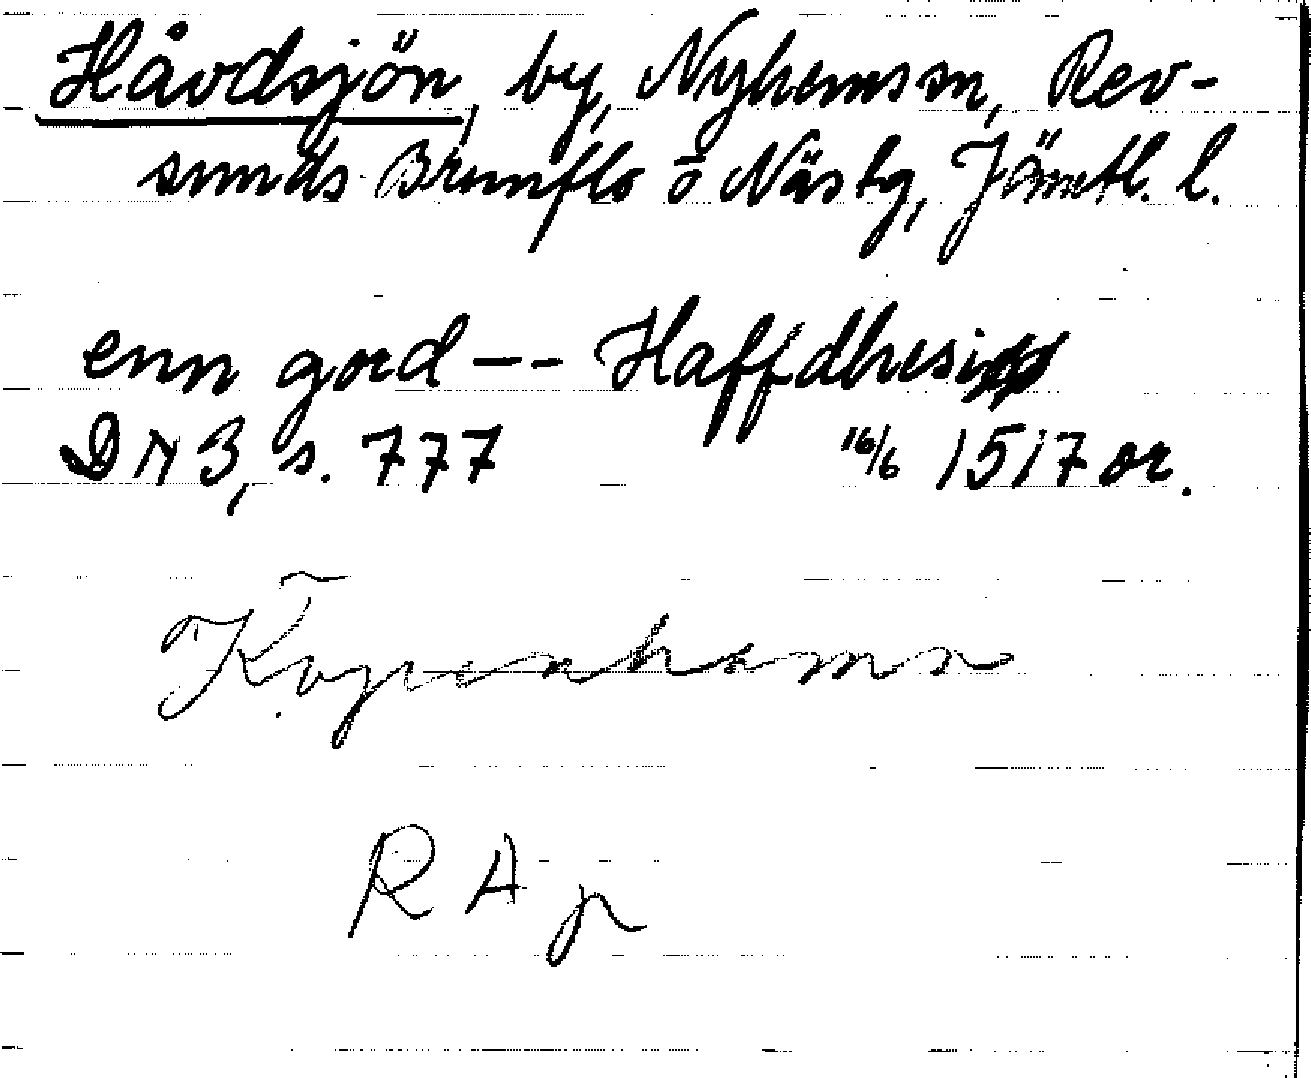 Håvdsjön, by, Nyhems sn, Rev-
sunds Brunflo o Näs tg, Jämtl. l.
enn gord -- Haffdhusi
DN 3, s. 777 16/6 1517 or.
Köpenhamn
RA p